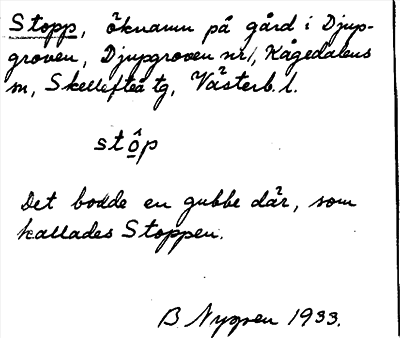 Stopp, öknamn på gård i Djup-
groven, Djupgroven nr 1, Kågedalens
sn, Skellefteå tg, Västerb. l.
stô̲p
Det bodde en gubbe där, som
kallades Stoppen.
B. Nygren 1933.